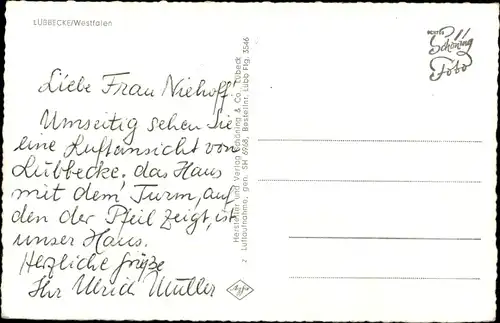 LÜBBECKE/Westfalen
Liebe Frau Niehoff!
Umseitig sehen Sie
eine Luftansicht von
Lübbecke, das Haus
mit dem Turm, auf
den der Pfeil zeigt, ist
unser Haus.
Herzliche Grüße
Ihr Ulrich Müller
Hersteller und Verlag Schöning & Co., Lübeck
2 Luftaufnahme, gen. SH 6968, Bestellnr. Lübb Flg. 3546
ECHTES
Schöning
Foto
Agfa